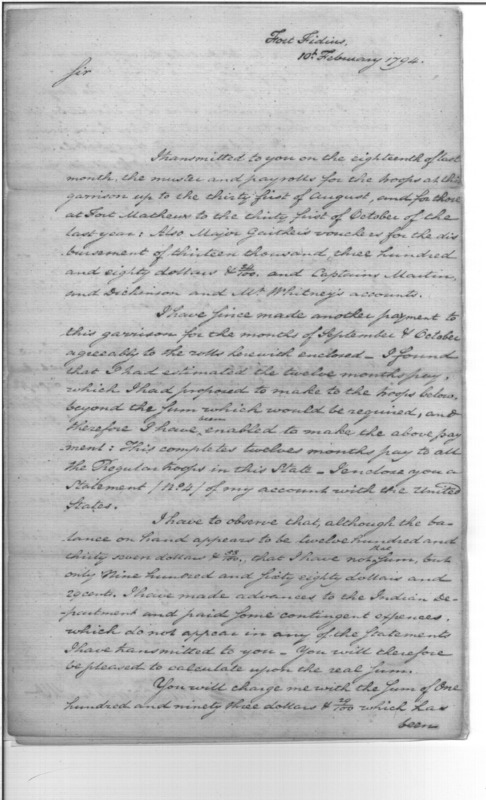 Fort Fidius.
10th February 1794.
Sir
I transmitted to you on the eighteenth of last
month, the muster and payrolls for the troops at this
garrison up to the thirty first of August, and for those
at Fort Mathews to the thirty first of October of the
last year: Also Major Gaither's vouchers for the dis
bursement of thirteen thousand three hundred
and eighty dollars & /100. and Captains Martin,
and Dickinson and Mr. Whitney's accounts.
I have since made another payment to
this garrison for the months of September & October
agreeably to the rolls herewith enclosed – I found
that I had estimated the twelve months pay,
which I had proposed to make to the troops below,
beyond the Sum which would be required, and
therefore I have been enabled to make the above pay
ment: This completes twelves months pay to all
the Regular troops in this State – I enclose you a
Statement (No 4) of my account with the United
States.
I have to observe that, although the ba-
lance on hand appears to be twelve hundred and
thirty seven dollars & /100. that I have not that Sum, but
only Nine hundred and sixty eighty dollars and
29 cents. I have made advances to the Indian De-
partment and paid some contingent expences,
which do not appear in any of the Statements
I have transmitted to you – You will therefore
be pleased to calculate upon the real Sum.
You will charge me with the Sum of One
hundred and ninety three dollars & /100 which has
been